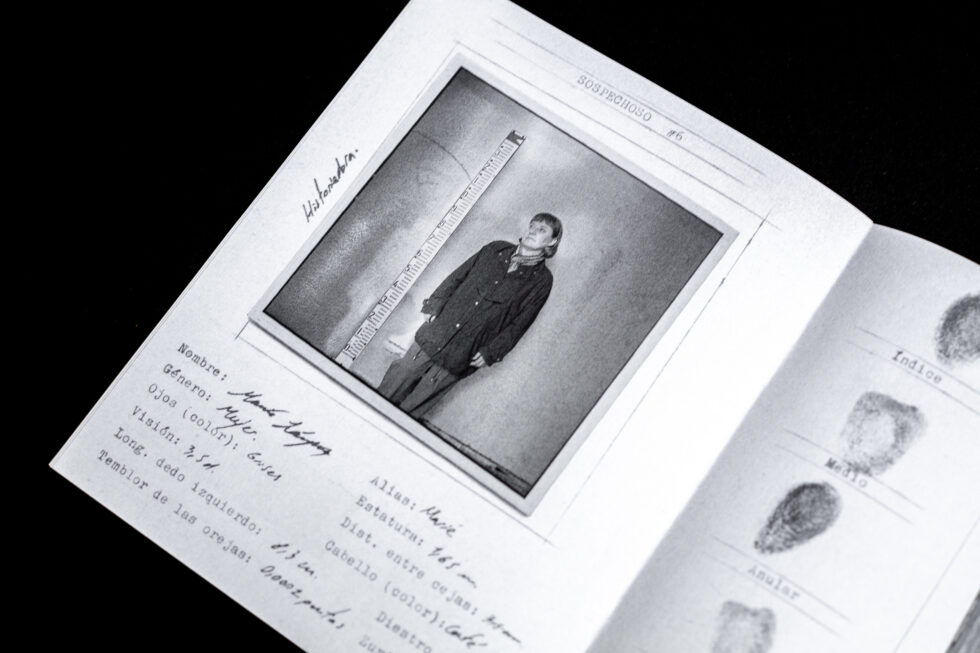 SOSPECHOSO #6
Historiadora.
Nombre: María
Género: Mujer.
Ojos (color): Grises
Visión: 3,5 d.
Long. dedo izquierdo: 8,3 cm.
Temblor de las orejas: 0,0002 puntos
Alias: Marie
Estatura: 1,65 m
Dist. entre cejas:
Cabello (color): Café
Diestro
Índice
Medio
Anular